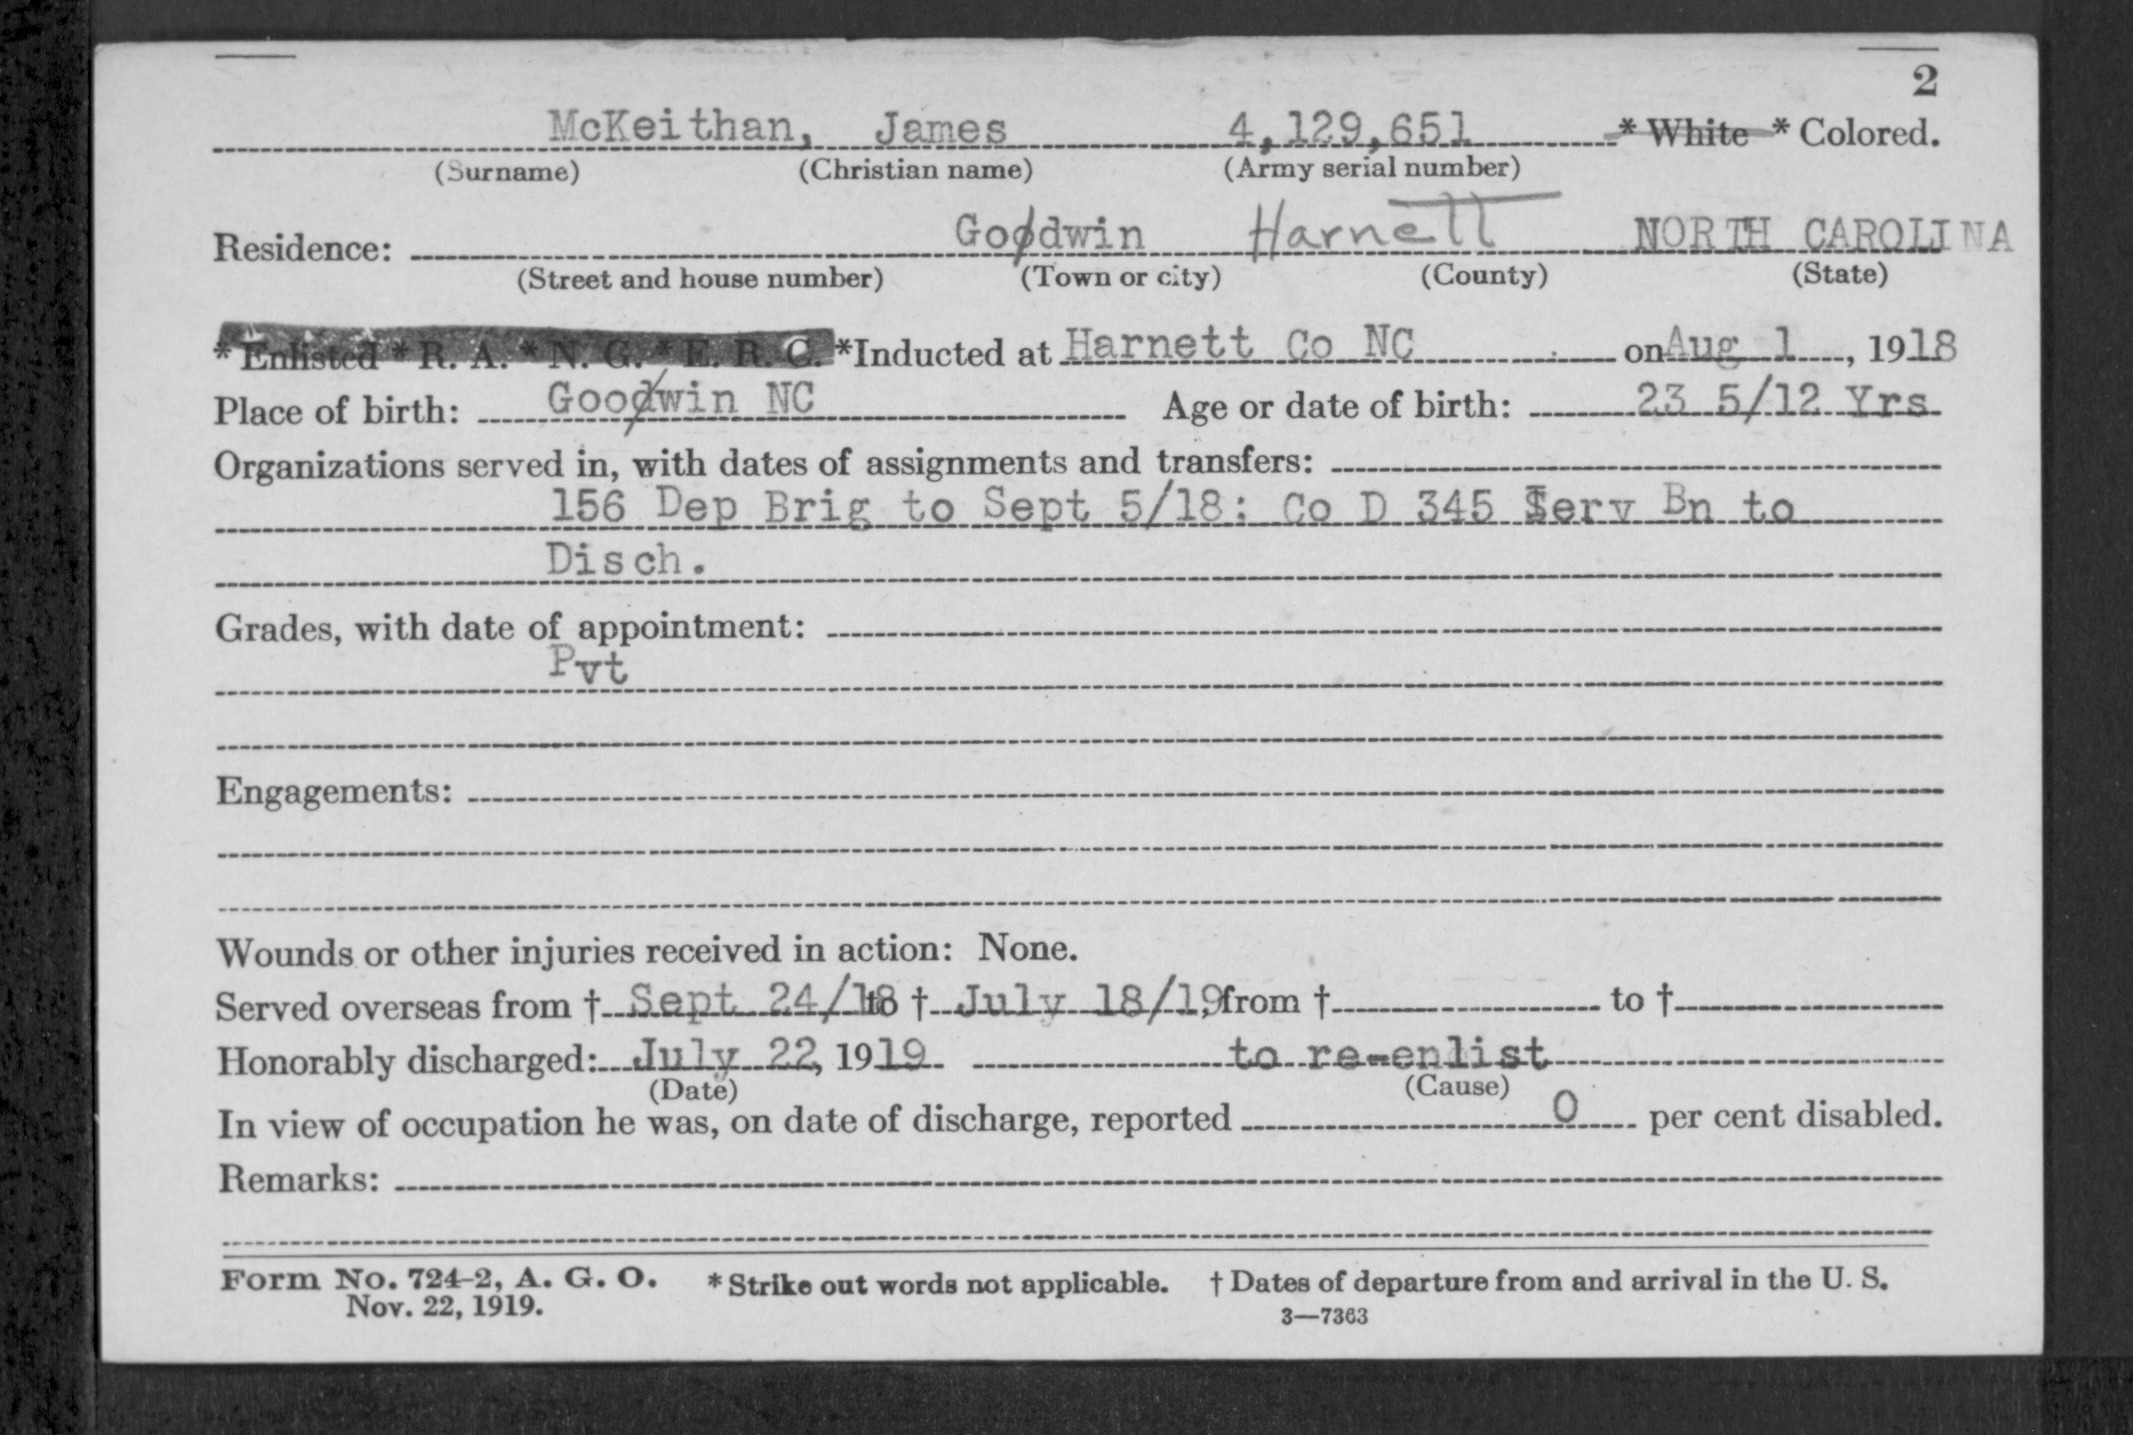 2
McKeithan, James 4,129,651 * White * Colored.
(Surname) (Christian name) (Army serial number)
Residence: Goodwin Harnett NORTH CAROLINA
(Street and house number) (Town or city) (County) (State)
* Enlisted * R. A. * N. G. * E. R. C. *Inducted at Harnett Co NC on Aug 1, 1918
Place of birth: Goodwin NC Age or date of birth: 23 5/12 Yrs
Organizations served in, with dates of assignments and transfers:
156 Dep Brig to Sept 5/18: Co D 345 Serv Bn to
Disch.
Grades, with date of appointment:
Pvt
Engagements:
Wounds or other injuries received in action: None.
Served overseas from † Sept 24/18 to † July 18/19, from † to †
Honorably discharged: July 22, 1919 to re-enlist
(Date) (Cause)
In view of occupation he was, on date of discharge, reported 0 per cent disabled.
Remarks:
Form No. 724-2, A. G. O. * Strike out words not applicable. † Dates of departure from and arrival in the U. S.
Nov. 22, 1919. 3—7363